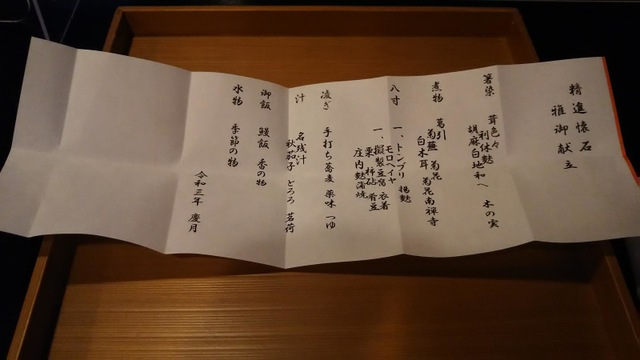 精進懐石
雅御献立
箸染 茸色々 木の実
利休麩
胡麻白地和へ
煮物 葛引
菊蕪 菊花
白木耳 菊花南禅寺
八寸 一、トンブリ 揚麩
モロヘイヤ
一、擬製豆腐 衣着
栗 柿砧 青豆
庄内麩蒲焼
凌ぎ 手打ち蕎麦 薬味 つゆ
汁 名残汁
秋茄子 とろろ 茗荷
御飯 鰻飯 香の物
水物 季節の物
令和三年 慶月